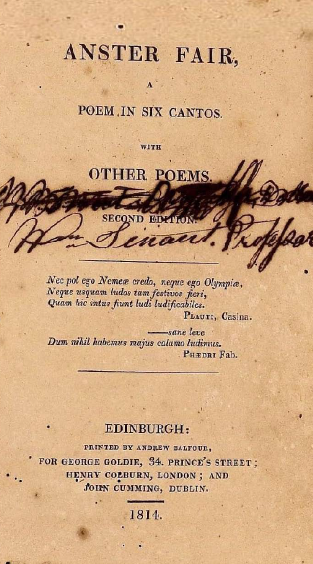 ANSTER FAIR,
A
POEM IN SIX CANTOS.
WITH
OTHER POEMS.
SECOND EDITION.
Wm. Tenant. Professor
Nec pol ego Nemeæ credo, neque ego Olympiæ,
Neque usquam ludos tam festivos fieri,
Quam hic intus fiunt ludi ludificabiles.
PLAUTI, Casina.
——sane leve
Dum nihil habemus majus calamo ludimus.
PHÆDRI Fab.
EDINBURGH:
PRINTED BY ANDREW BALFOUR,
FOR GEORGE GOLDIE, 34. PRINCE'S STREET;
HENRY COLBURN, LONDON; AND
JOHN CUMMING, DUBLIN.
1814.